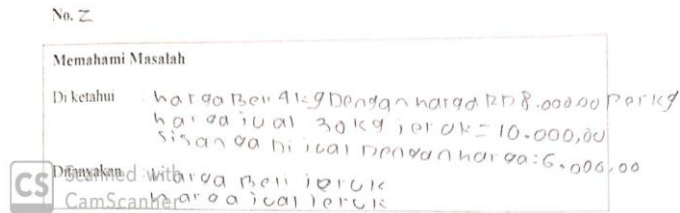 No. 2
Memahami Masalah
Di ketahui harga Beli 41kg Dengan harga RP 8.000.00 Per kg
harga jual 30kg jeruk = 10.000,00
sisanya di jual Dengan harga: 6.000,00
Ditanyakan: harga Beli jeruk
harga jual jeruk
CS Scanned with
CamScanner